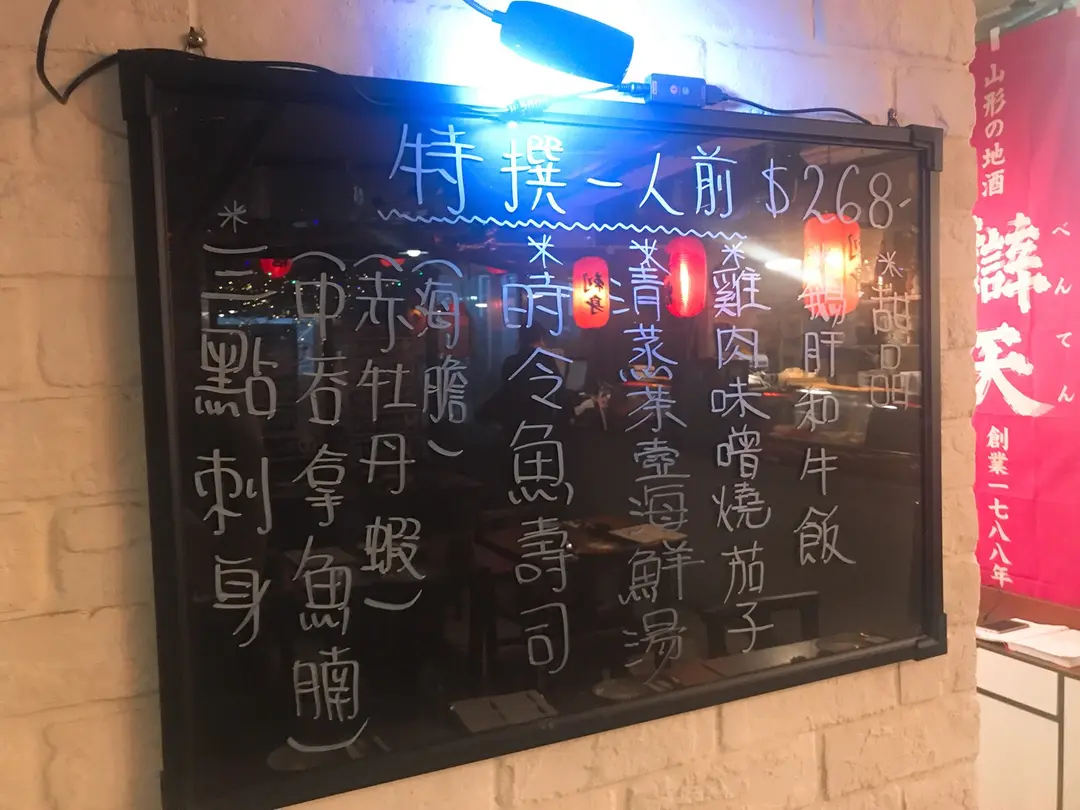 特撰一人前 $268-
*三點刺身
(中吞拿魚腩)
(赤牡丹蝦)
(海膽)
*時令魚壽司
*清蒸茶壺海鮮湯
*雞肉味噌燒茄子
*鵝肝和牛飯
*甜品
刺身
山形の地酒
辯天
べんてん
創業一七八八年